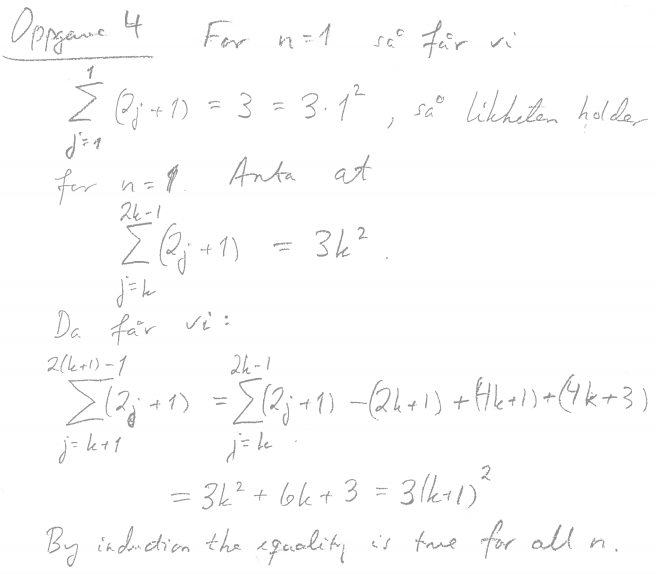 Oppgave 4 For n=1 så får vi
\sum_{j=1}^{1} (2j+1) = 3 = 3·1², så likheten holder
for n=1. Anta at
\sum_{j=k}^{2k-1} (2j+1) = 3k².
Da får vi:
\sum_{j=k+1}^{2(k+1)-1} (2j+1) = \sum_{j=k}^{2k-1} (2j+1) -(2k+1) +(4k+1)+(4k+3)
= 3k² + 6k + 3 = 3(k+1)²
By induction the equality is true for all n.